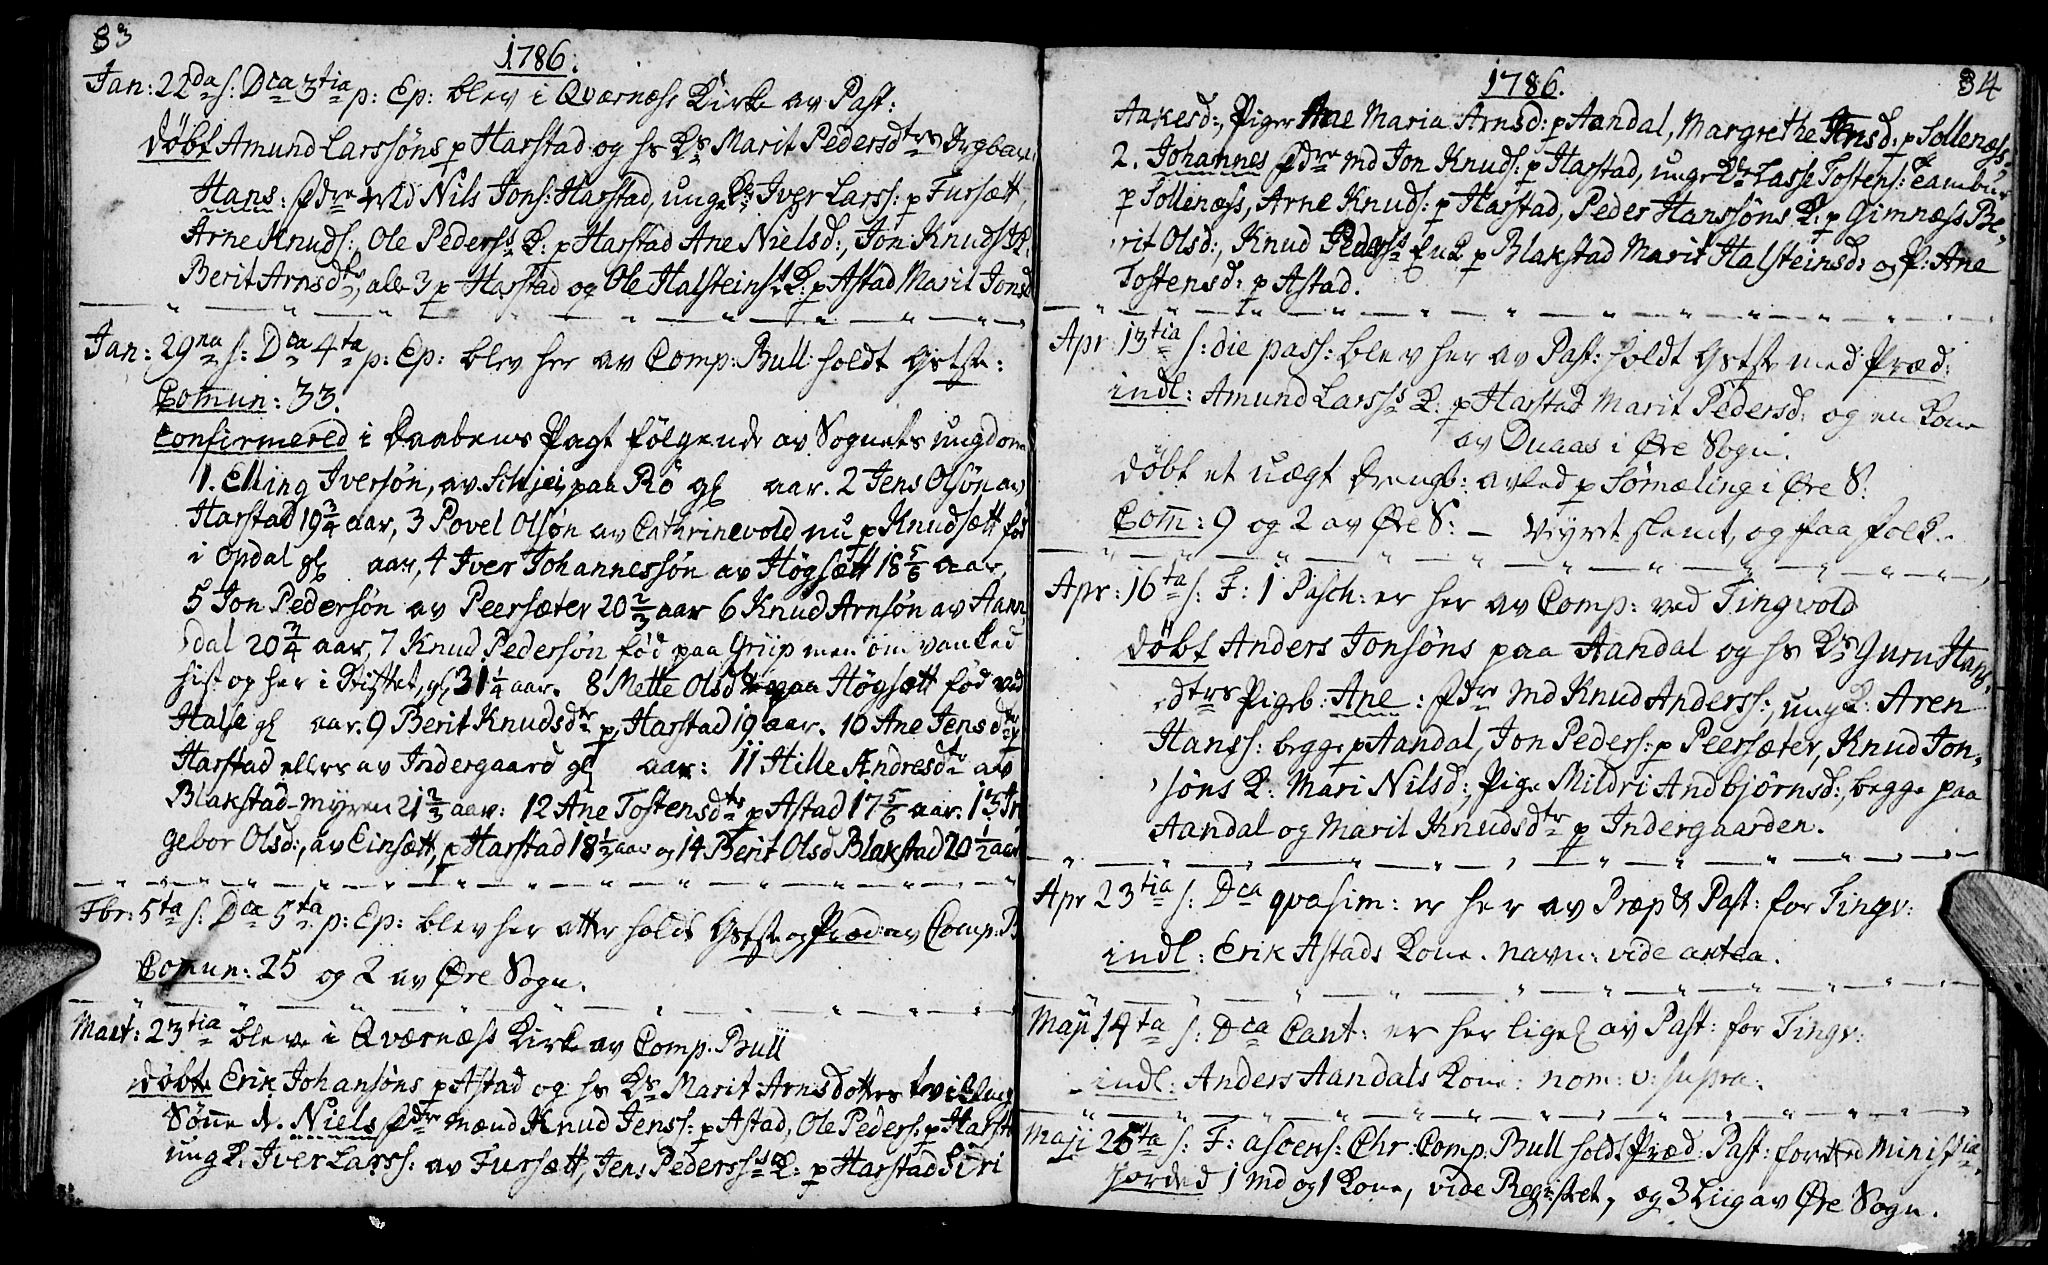 83
1786.
Jan: 22da s: Dca 3tia p: Ep: blev i Qværnæss Kirke av Past:
döbt Amund Larssöns p Harstad og hs Ks Marit Pedersdtrs
Hans: fdre Md Nils Jons: Harstad, ungK: Iver Larss: p Fursætt,
Arne Knuds:, Ole Peders K: p Harstad Ane Nielsd:, Jon Knuds K:
Berit Arnsdtr, alle 3 p Harstad og Ole Halsteins K: p Astad Marit Jonsd
Jan: 29na s: Dca 4ta p: Ep: blev her av Comp: Bull holdt Gstste:
Comun: 33.
Confirmered i Daabens Pagt fölgende av Sognets ungdom
1. Elling Iversön, av Schjei, paa Rö gl aar. 2 Jens Olsön av
Harstad 19 3/4 aar, 3 Povel Olsön av Cathrinevold nu p Knudsætt föd
i Opdal gl aar, 4 Iver Johannessön av Högsætt 18 5/6 aar,
5 Jon Pedersön av Peersæter 20 2/3 aar 6 Knud Arnsön av Aann
dal 20 3/4 aar, 7 Knud Pedersön föd paa Griip men om vanked
hist og her i Stiftet, gl 31 1/4 aar. 8 Mette Olsd paa Högsætt föd ved
Halse gl aar. 9 Berit Knudsdtr p Harstad 19 aar. 10 Ane Jensdtr p
Harstad ellers av Indergaard gl aar: 11 Hille Andresdtr av
Blakstad-myren 21 2/3 aar: 12 Ane Tostensdtr p Astad 17 5/6 aar. 13 In
gebor Olsd:, av Einsætt, p Harstad 18 1/2 aar og 14 Berit Olsd Blakstad 20 1/2 aar
Fbr: 5ta s: Dca 5ta p: Ep: blev her atter holdt Gstste og Præd: av Comp: B
Comun: 25 og 2 av Öre Sogn.
Mart: 23tia blev i Qværnæss Kirke av Comp. Bull
döbt Erik Johansöns p Astad og hs Ks Marit Arnsdotters tvilling
Sönne 1. Niels fdre mænd Knud Jenss: p Astad, Ole Peders: p Harst
ungK. Iver Larss: av Fursætt, Jens Pederss K: p Harstad Siri
1786.
84
Aakesd:, Piger Ane Maria Arnsd: p Aandal, Margrethe Arnsd: p Sollenæss.
2. Johannes fdre md Jon Knuds: p Harstad, ungeKe Lasse Tostens:
p Sollenæss, Arne Knuds: p Harstad, Peder Hanssöns K: p Gimnæss Be,
rit Olsd:, Knud Pederss Enk p Blakstad Marit Halsteinsd: og P: Ane
Tostensd: p Astad.
Apr: 13tia s: die pass: blev her av Past: holdt Gstste med Præd:
indl: Amund Larss K: p Harstad Marit Pedersd: og en Kone
av Duaas i Öre Sogn.
döbt et uægt Drengb: avled p Sörnæling i Öre S:
Com: 9 og 2 av Öre S: - Veyret slemt, og faa folk.
Apr: 16ta s: F: 1 Pasch: er her av Comp: ved Tingvold
döbt Anders Jonsöns paa Aandal og hs Ks Guru Hans,
dtrs Pigeb: Ane: fdre md Knud Anderss:, ungK: Aren
Hanss: begge p Aandal, Jon Peders: p Peersæter, Knud Jon,
söns K: Mari Nilsd:, Pige Mildri Andbjörnsd:, begge paa
Aandal og Marit Knudsdtr p Indergaarden.
Apr 23tia s: Dca qvasim: er her av Præp & Past: for Tingv:
indl: Erik Astads Kone. navn: vide antea.
Maji 14ta s: Dca Cant: er her ligel av Past: for Tingv:
indl: Anders Aandals Kone: nom: v: supra.
Maji 25ta s: F: ascens: Chr: Comp: Bull holdt Præd: Past: forretted Minist:ia.
jorded 1 md og 1 Kone, vide Registret, og 3 Liig av Öre Sogn.